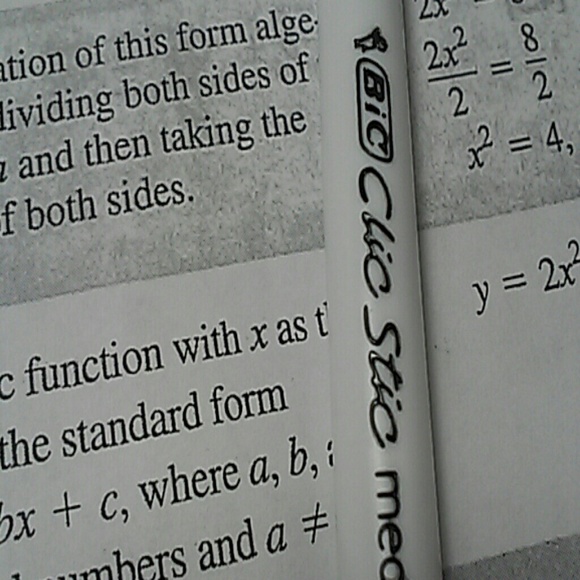 ation of this form alge-
dividing both sides of
and then taking the
f both sides.
c function with x as
the standard form
bx + c, where a, b,
numbers and a ≠
BiC Clic Stic med
2x
2x²/2 = 8/2
x² = 4,
y = 2x²